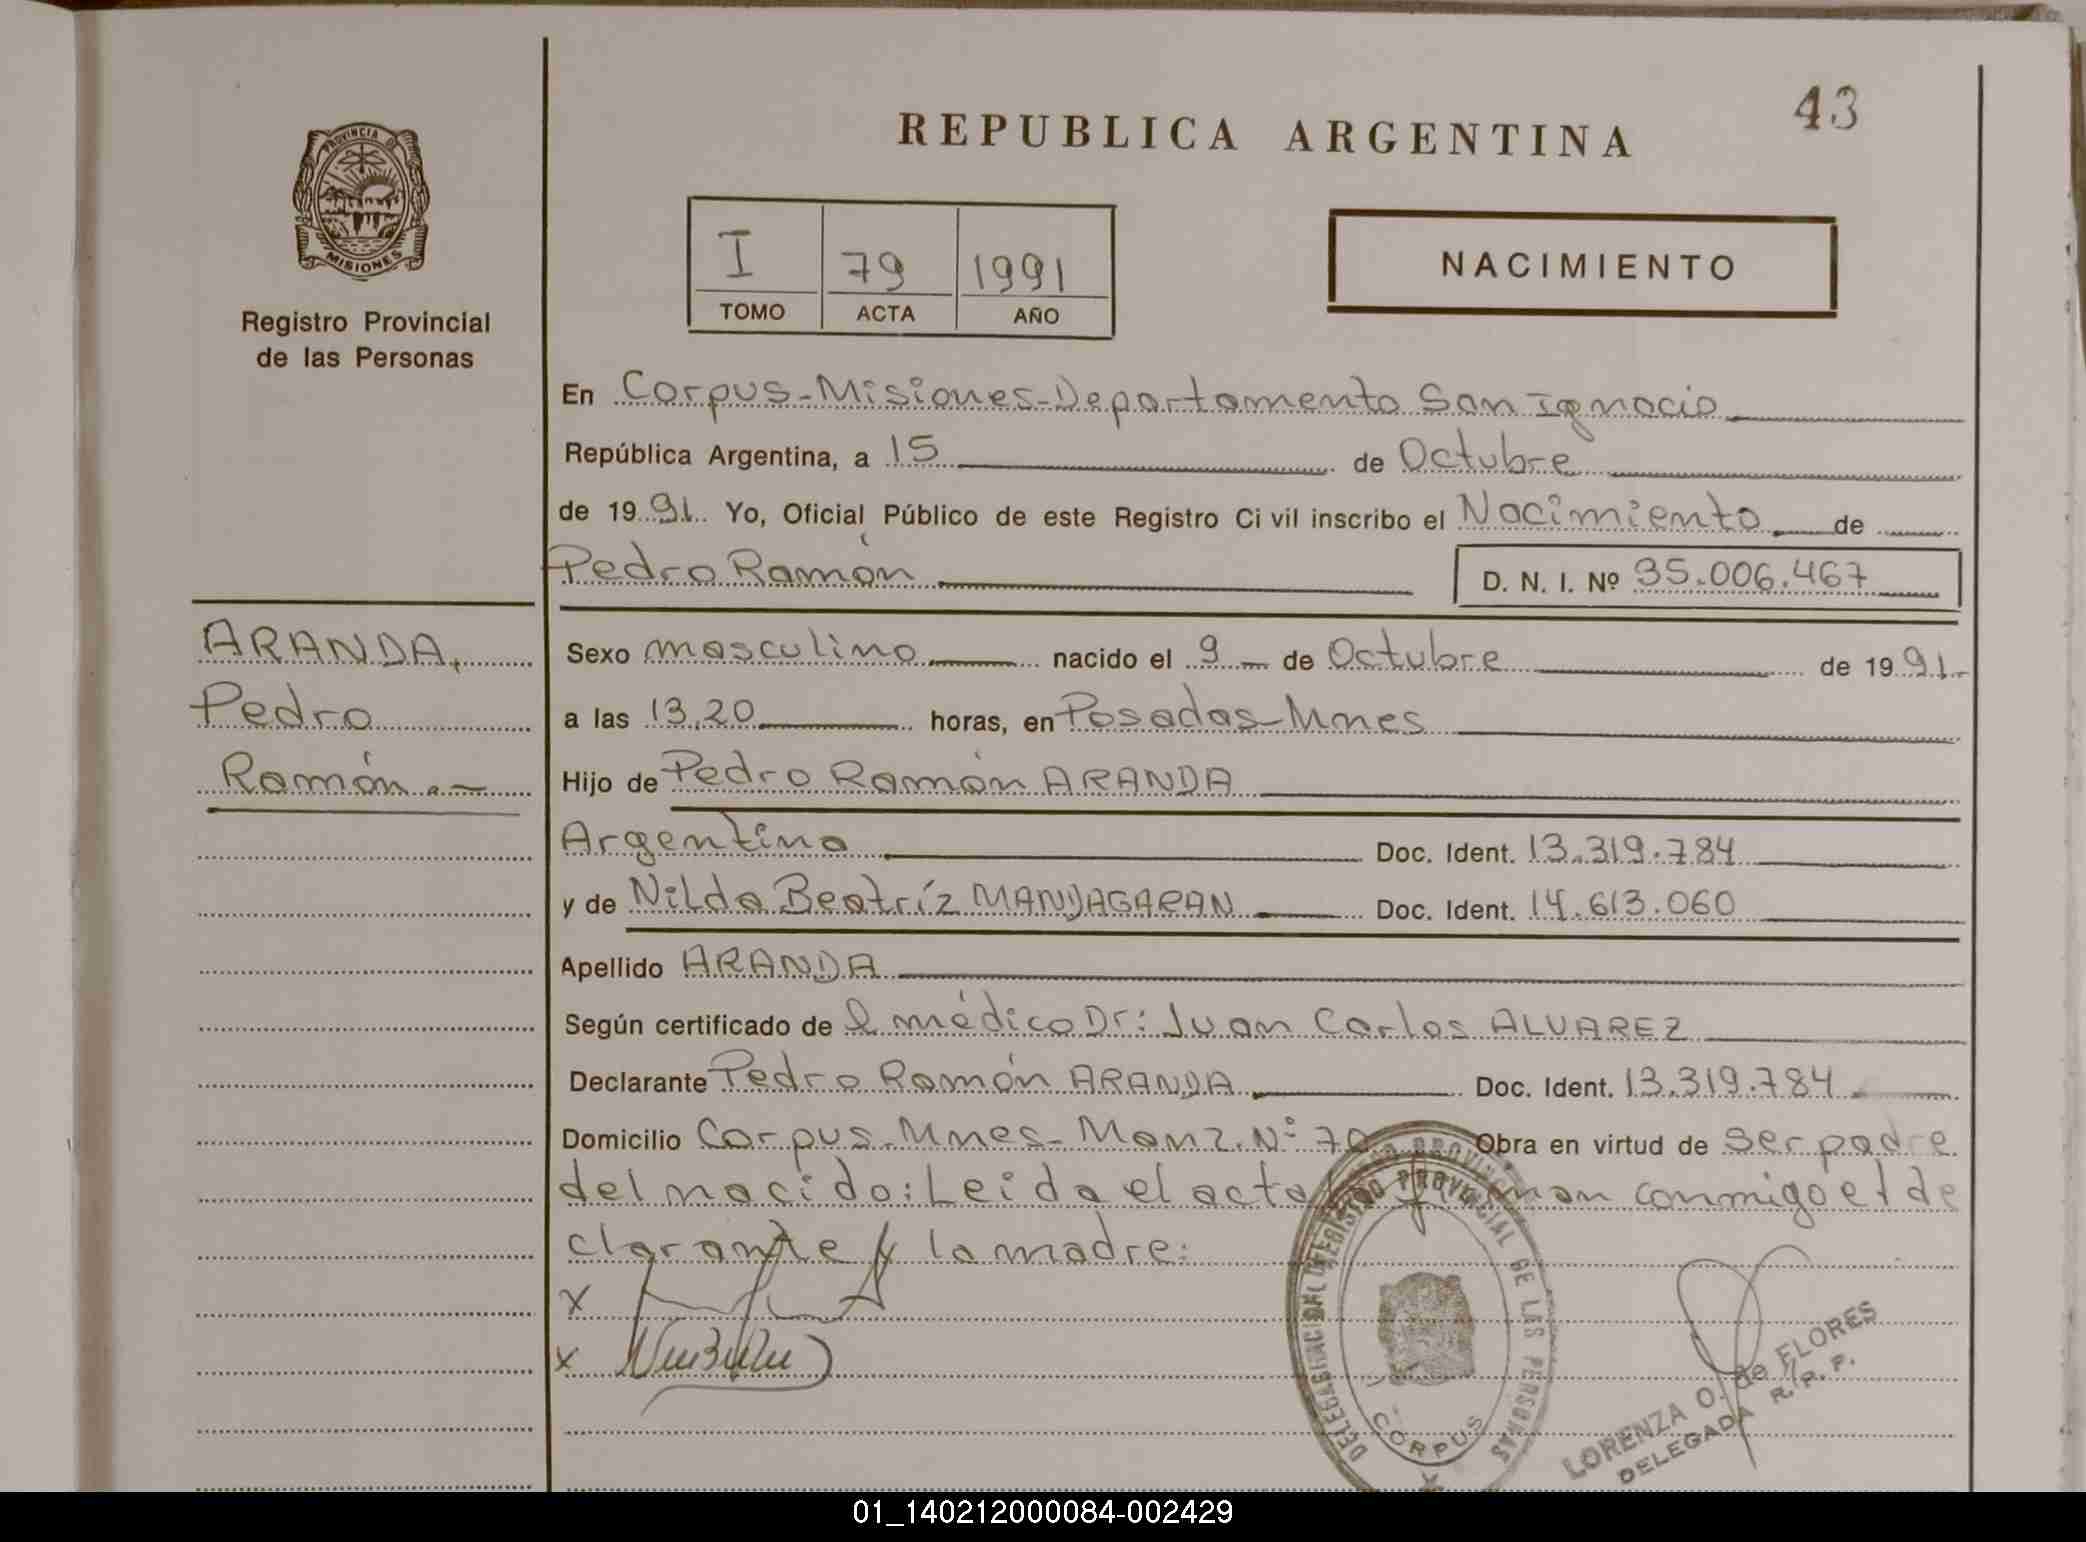 43
REPUBLICA ARGENTINA
PROVINCIA DE
MISIONES
Registro Provincial
de las Personas
I 79 1991
TOMO ACTA AÑO
NACIMIENTO
En Corpus-Misiones-Departamento San Ignacio
República Argentina, a 15 de Octubre
de 1991. Yo, Oficial Público de este Registro Civil inscribo el Nacimiento de
Pedro Ramón D. N. I. Nº 35.006.467
ARANDA,
Pedro
Ramón.-
Sexo masculino nacido el 9 de Octubre de 1991.-
a las 13,20 horas, en Posadas-Mnes
Hijo de Pedro Ramón ARANDA
Argentino Doc. Ident. 13.319.784
y de Nilda Beatríz MANDAGARAN Doc. Ident. 14.613.060
Apellido ARANDA
Según certificado de l médico Dr: Juan Carlos ALVAREZ
Declarante Pedro Ramón ARANDA Doc. Ident. 13.319.784
Domicilio Corpus-Mnes-Manz.Nº 70 Obra en virtud de ser padre
del nacido: Leida el acta firman conmigo el de
clarante y la madre:
x
x
REGISTRO PROVINCIAL DE LAS PERSONAS
CORPUS
LORENZA O. de FLORES
DELEGADA R. P. P.
01_140212000084-002429